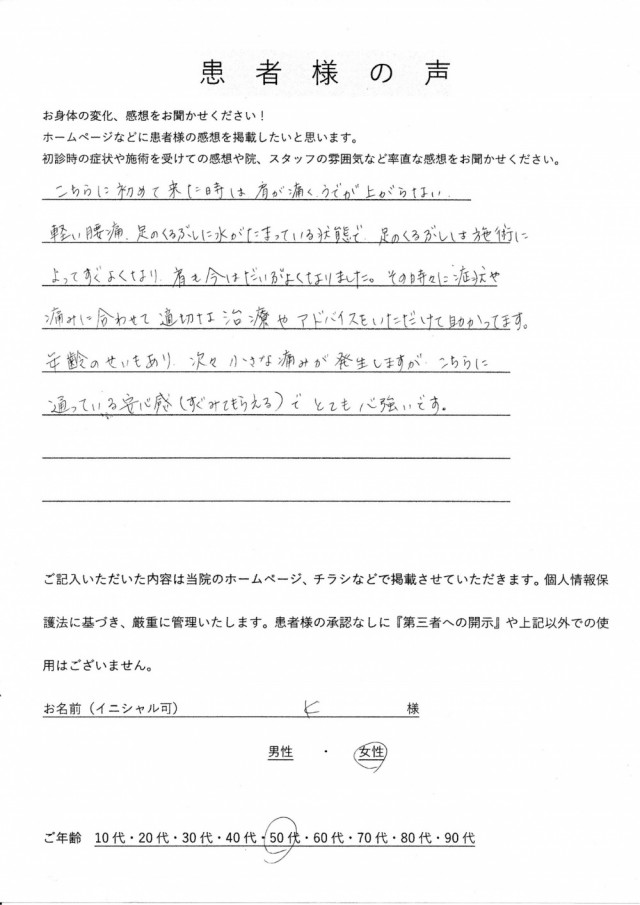 患者様の声
お身体の変化、感想をお聞かせください！
ホームページなどに患者様の感想を掲載したいと思います。
初診時の症状や施術を受けての感想や院、スタッフの雰囲気など率直な感想をお聞かせください。
こちらに初めて来た時は肩が痛く、うでが上がらない、
軽い腰痛、足のくるぶしに水がたまっている状態で、足のくるぶしは施術に
よってすぐよくなり、肩も今はだいぶよくなりました。その時々に症状や
痛みに合わせて適切な治療やアドバイスをいただけて助かってます。
年齢のせいもあり、次々小さな痛みが発生しますが、こちらに
通っている安心感（すぐみてもらえる）でとても心強いです。
ご記入いただいた内容は当院のホームページ、チラシなどで掲載させていただきます。個人情報保
護法に基づき、厳重に管理いたします。患者様の承認なしに『第三者への開示』や上記以外での使
用はございません。
お名前（イニシャル可） K 様
男性 ・ 女性
ご年齢 10代・20代・30代・40代・50代・60代・70代・80代・90代